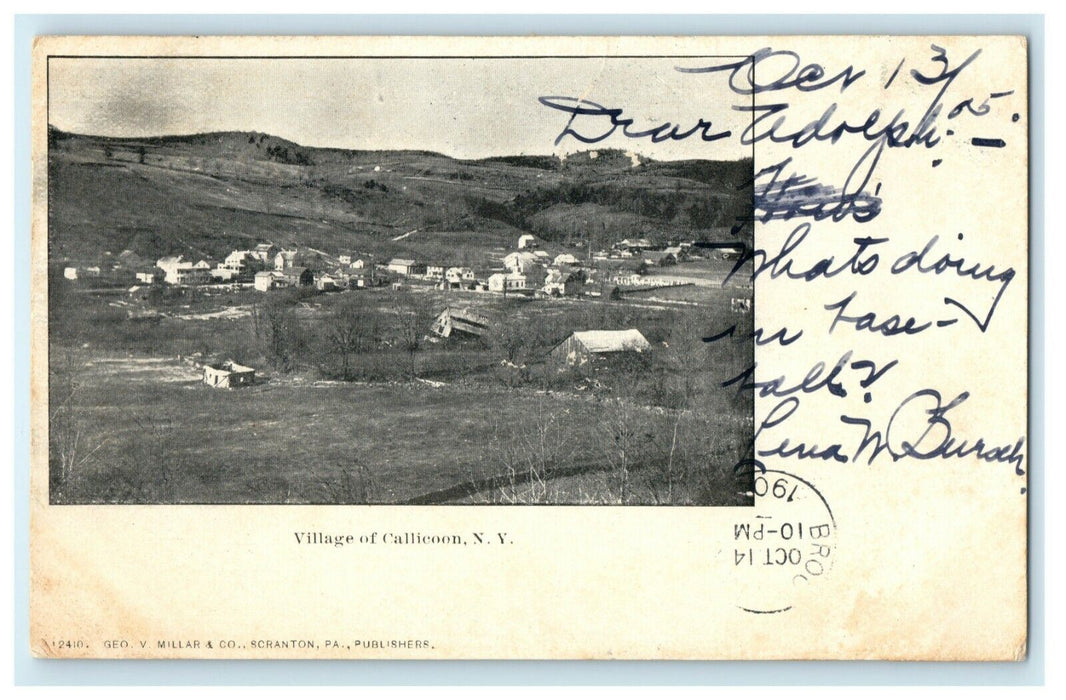 Oct 13/05.
Dear Adolph: —
How's
Whats doing
in base-
ball?
Lena W. Bursch.
190
10-PM
OCT 14
BROO
Village of Callicoon, N. Y.
12410. GEO. V. MILLAR & CO., SCRANTON, PA., PUBLISHERS.